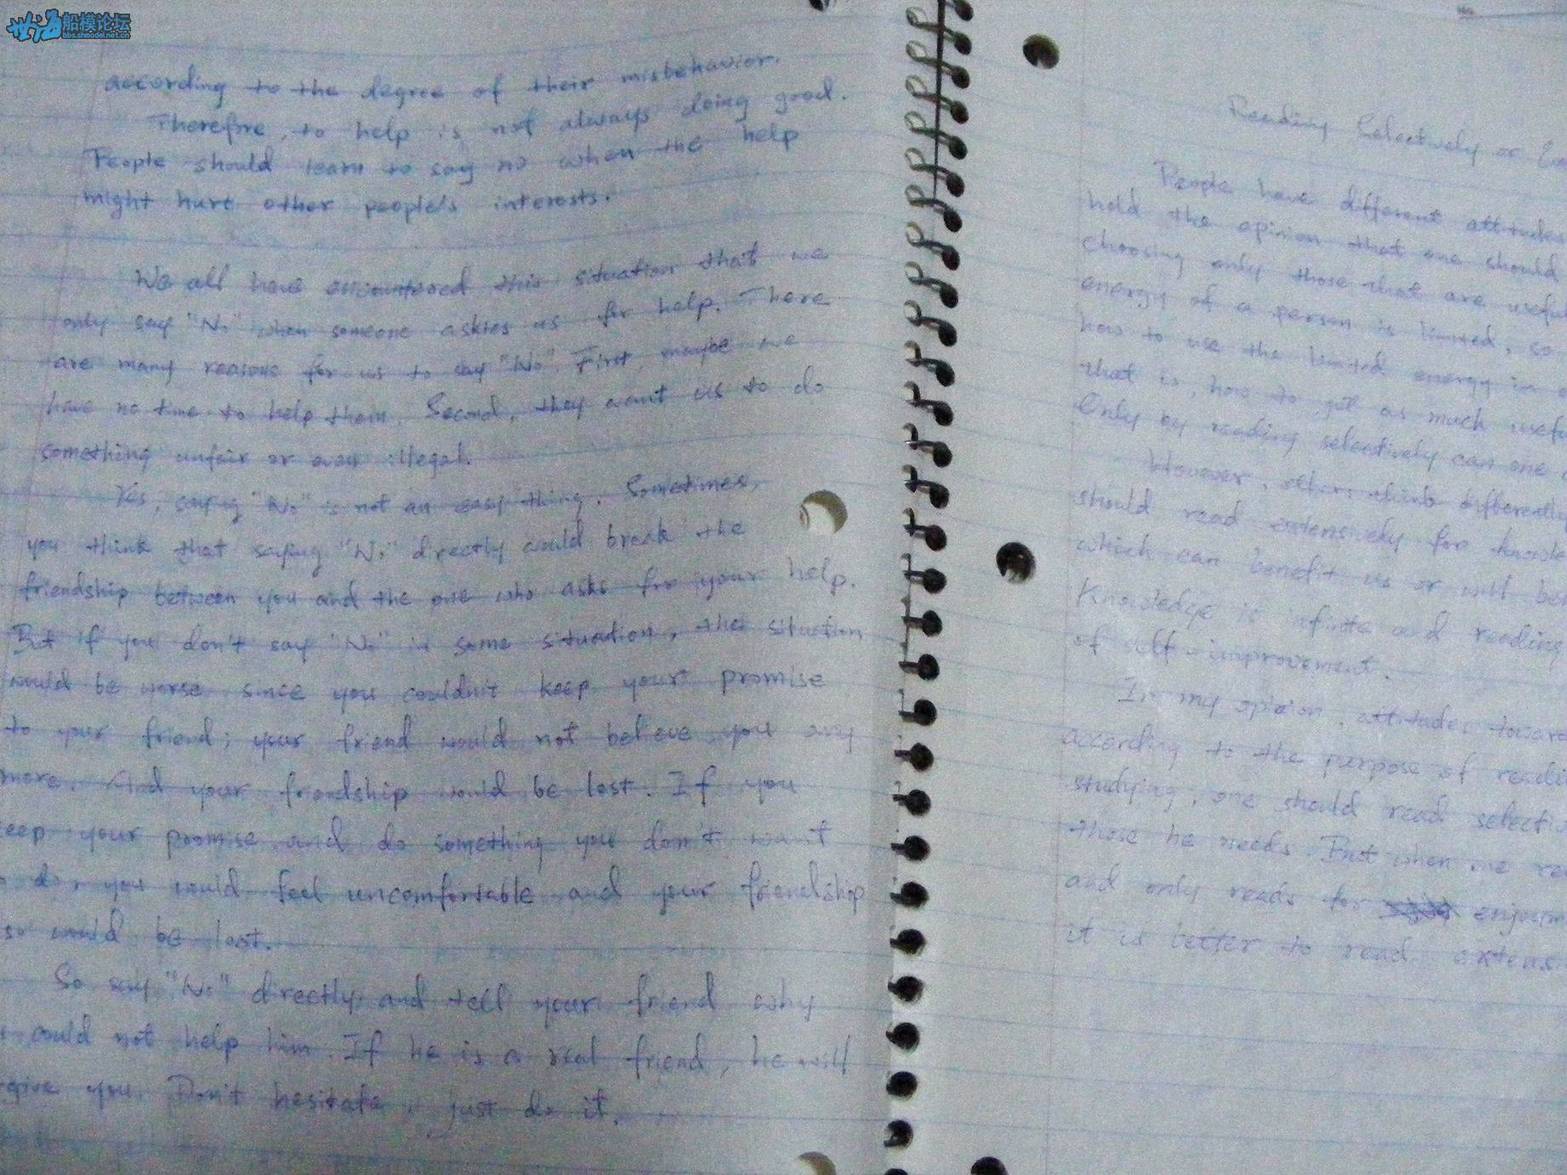 世海船模论坛
bbs.shmodel.net.cn
according to the degree of their misbehavior.
Therefore, to help is not always doing good.
People should learn to say no when the help
might hurt other people's interests.
We all have encountered this situation that we
only say "No" when someone askes us for help. There
are many reasons for us to say "No". First, maybe we
have no time to help them. Second, they want us to do
something unfair or even illegal.
Yes, saying "No" is not an easy thing. Sometimes,
you think that saying "No" directly would break the
friendship between you and the one who asks for your help.
But if you don't say "No" in some situation, the situation
would be worse since you couldn't keep your promise
to your friend; your friend would not believe you any
more. And your friendship would be lost. If you
eep your promise and do something you don't want
do, you would feel uncomfortable and your friendship
so would be lost.
So say "No" directly and tell your friend why
could not help him. If he is a real friend, he will
give you. Don't hesitate, just do it.
Reading Selectively or
People have different attitude
hold the opinion that one should
choosing only those that are usefu
energy of a person is limited, so
how to use the limited energy in
that is, how to get as much usefu
Only by reading selectively can one
However, others think differently
should read extensively for knowle
which can benefit us or will be
Knowledge is infinite and reading
of self-improvement.
In my opinion, attitudes toward
according to the purpose of readi
studying, one should read selecti
those he needs. But when one re
and only reads for enjoym
it is better to read extens